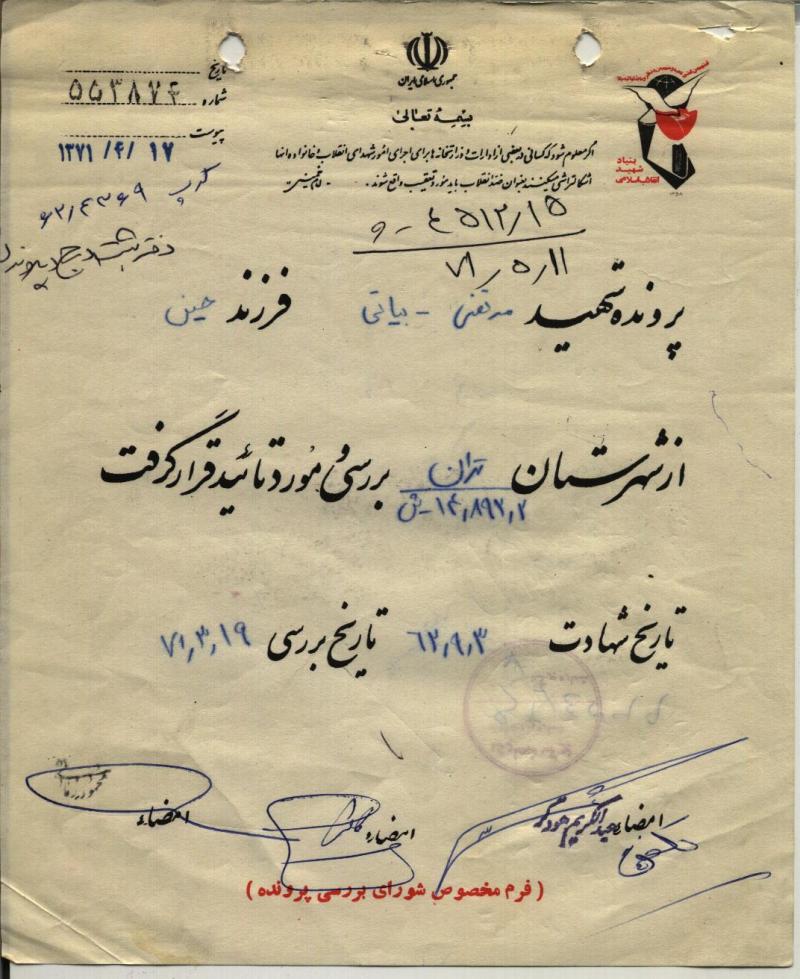 جمهوری اسلامی ایران
بسمه تعالی
تاریخ
شماره ۵۵۳۸۷۴
پیوست
۱۳۷۱ /۴/ ۱۷
۶۲/۴۳۶۹
بنیاد
شهید
انقلاب اسلامی
اگر معلوم شود که کسانی در بعضی از ادارات و وزارتخانه ها برای اجرای امور شهدای انقلاب و خانواده آنها
اشکالتراشی میکنند بعنوان ضد انقلاب باید مورد تعقیب واقع شوند . - امام خمینی
۴۵۱۲/۱۵ - و
۷۱/۵/۱۱
پرونده شهید مرتضی - بیاتی فرزند حسین
از شهرستان تهران بررسی و مورد تائید قرار گرفت
۱۴,۸۹۲,۲ - ش
تاریخ شهادت ۶۲,۹,۳ تاریخ بررسی ۷۱,۳,۱۹
امضاء عبدالکریم
امضاء
امضاء
( فرم مخصوص شورای بررسی پرونده )